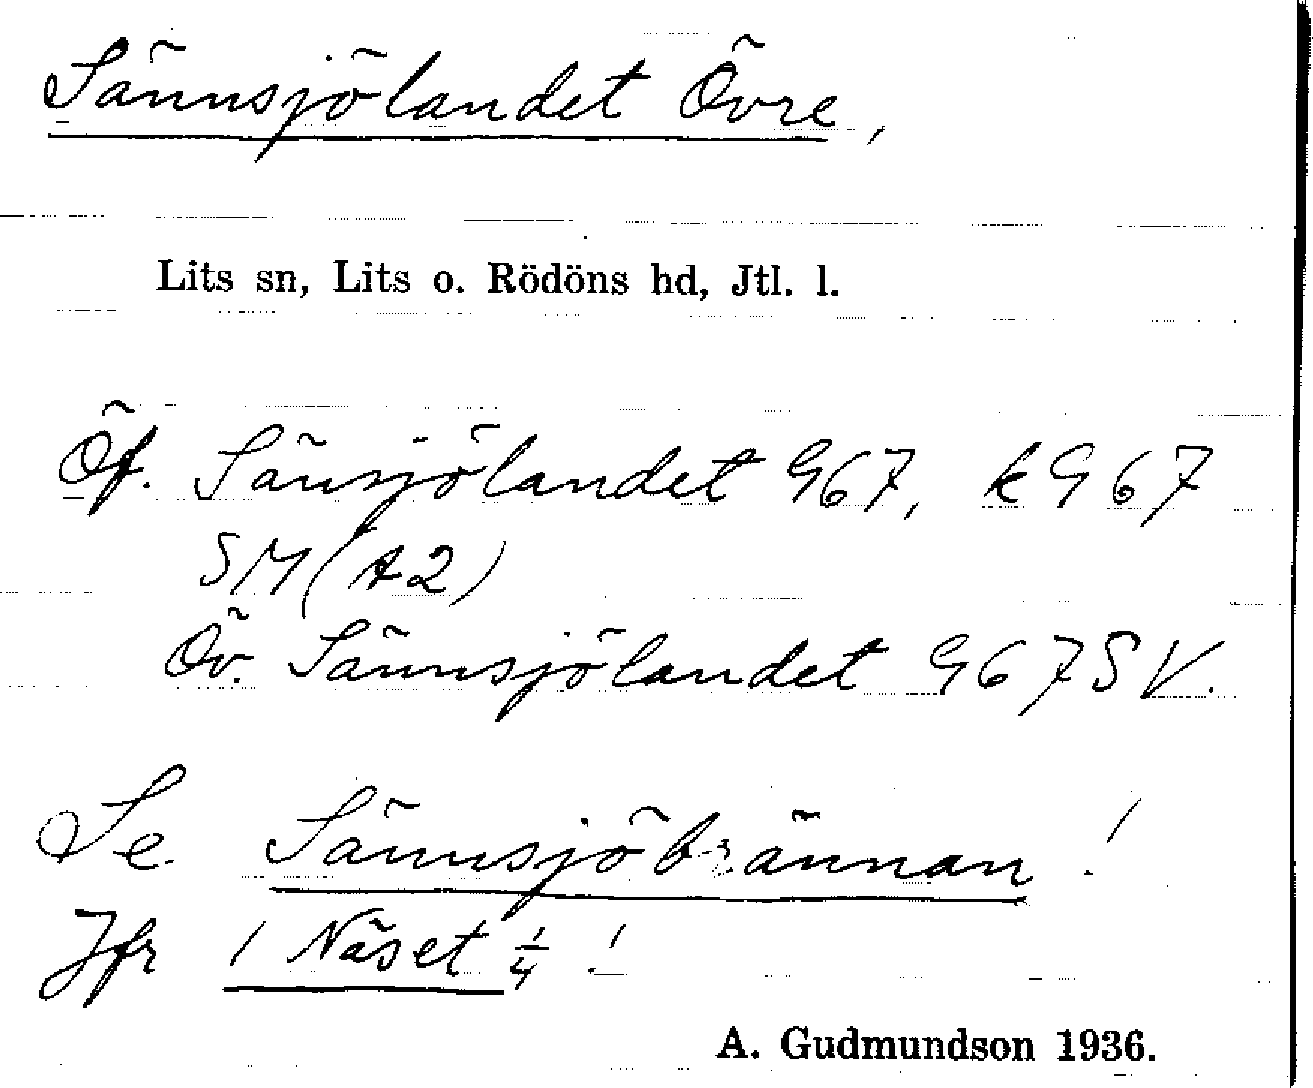 Sännsjölandet Övre,
Lits sn, Lits o. Rödöns hd, Jtl. l.
Öf. Sänsjölandet 967, k967
SM (A2)
Öv. Sännsjölandet 967 SV.
Se Sännsjöbrännan !
Jfr 1 Näset 1/4 !
A. Gudmundson 1936.